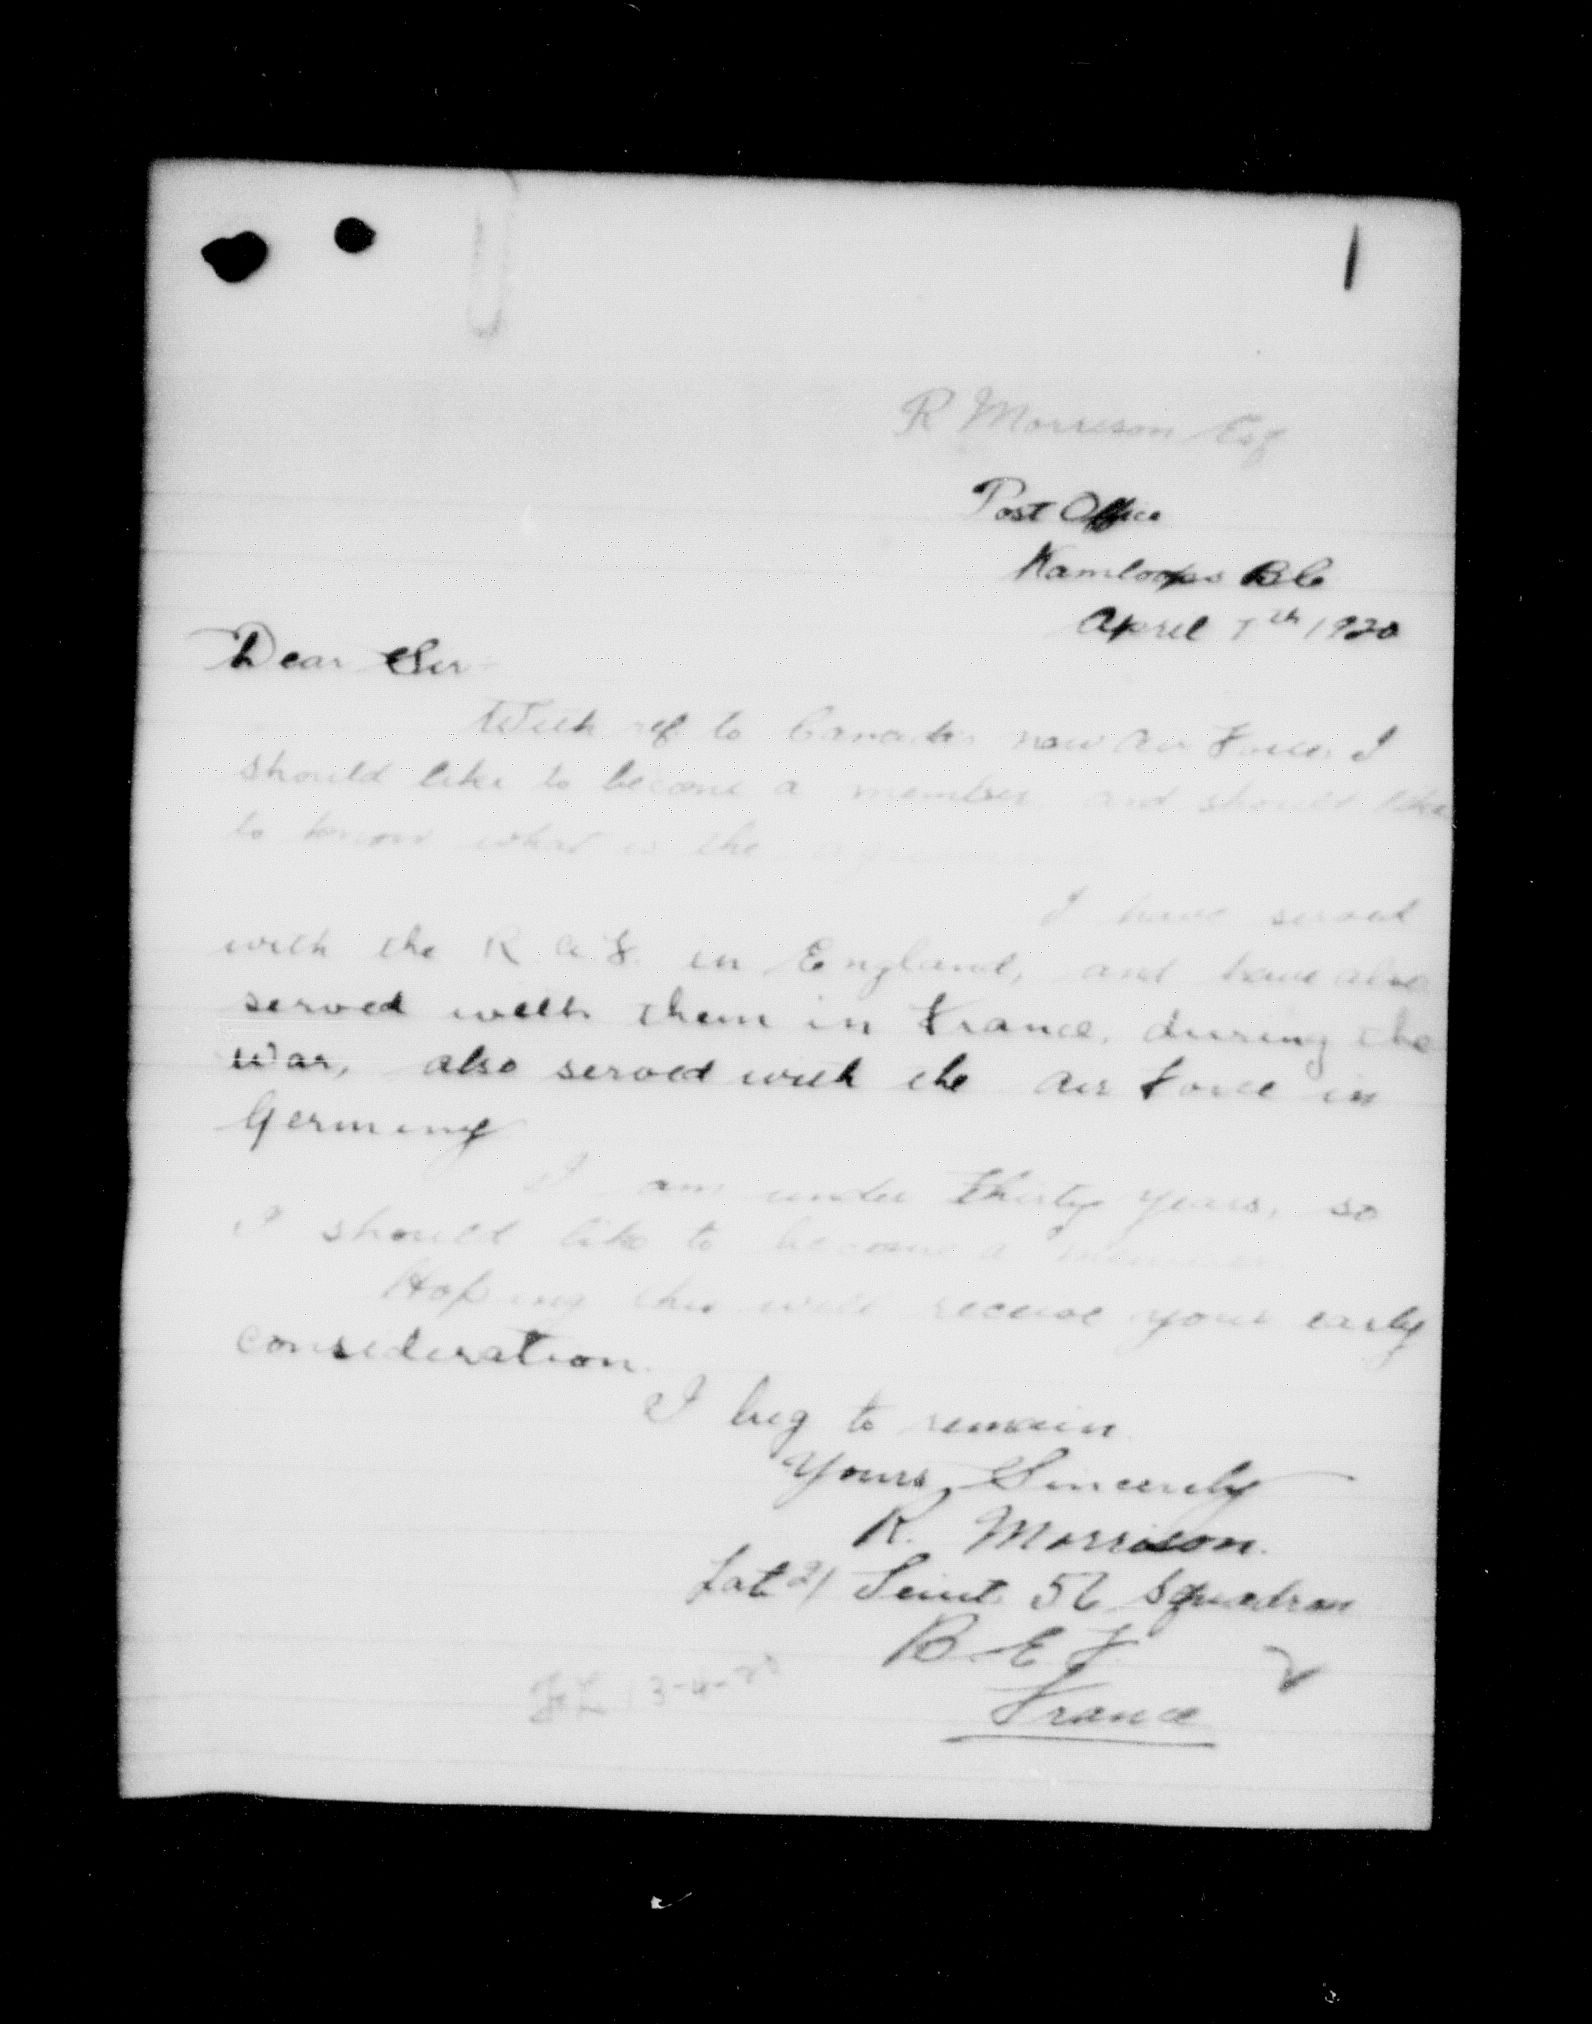 R Morrison Esq
Post Office
Kamloops BC
April 7th 1920
Dear Sir
With ref to Canada's new Air Force, I
should like to become a member, and should like
to know what is the
I have served
with the R. A. F. in England, and have also
served with them in France, during the
War, also served with the Air Force in
Germany
I am under thirty years, so
I should like to become a member.
Hoping this will receive your early
consideration.
I beg to remain
Yours Sincerely
R. Morrison.
Late 56 Squadron
B. E. F.
France
13-4-20